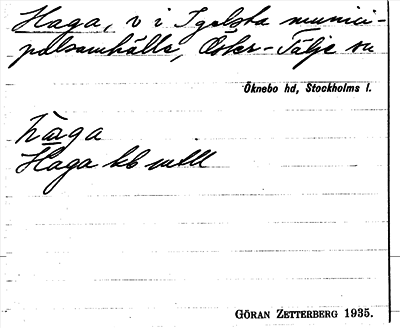 Haga, v i Igelsta munici-
palsamhälle, Öster-Tälje sn
Öknebo hd, Stockholms l.
haga
Haga kb
GÖRAN ZETTERBERG 1935.